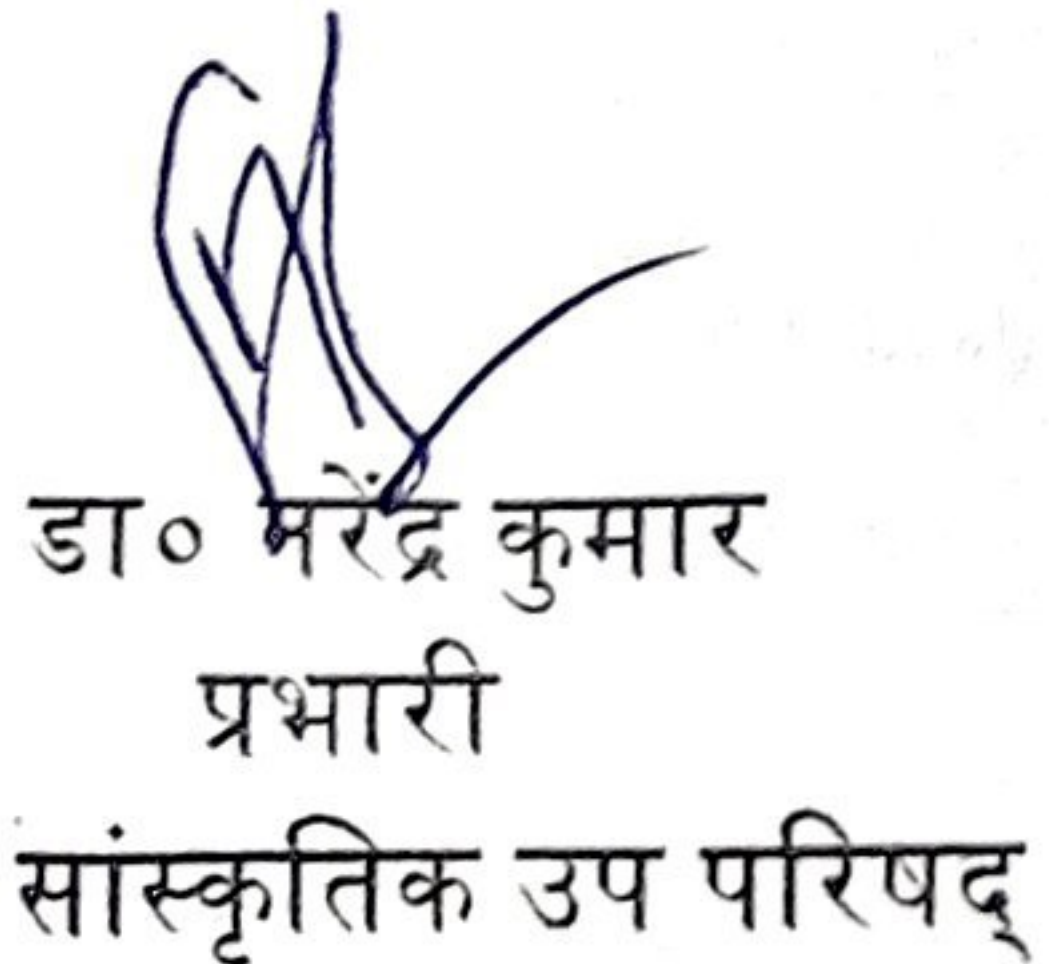 डा० नरेंद्र कुमार
प्रभारी
सांस्कृतिक उप परिषद्